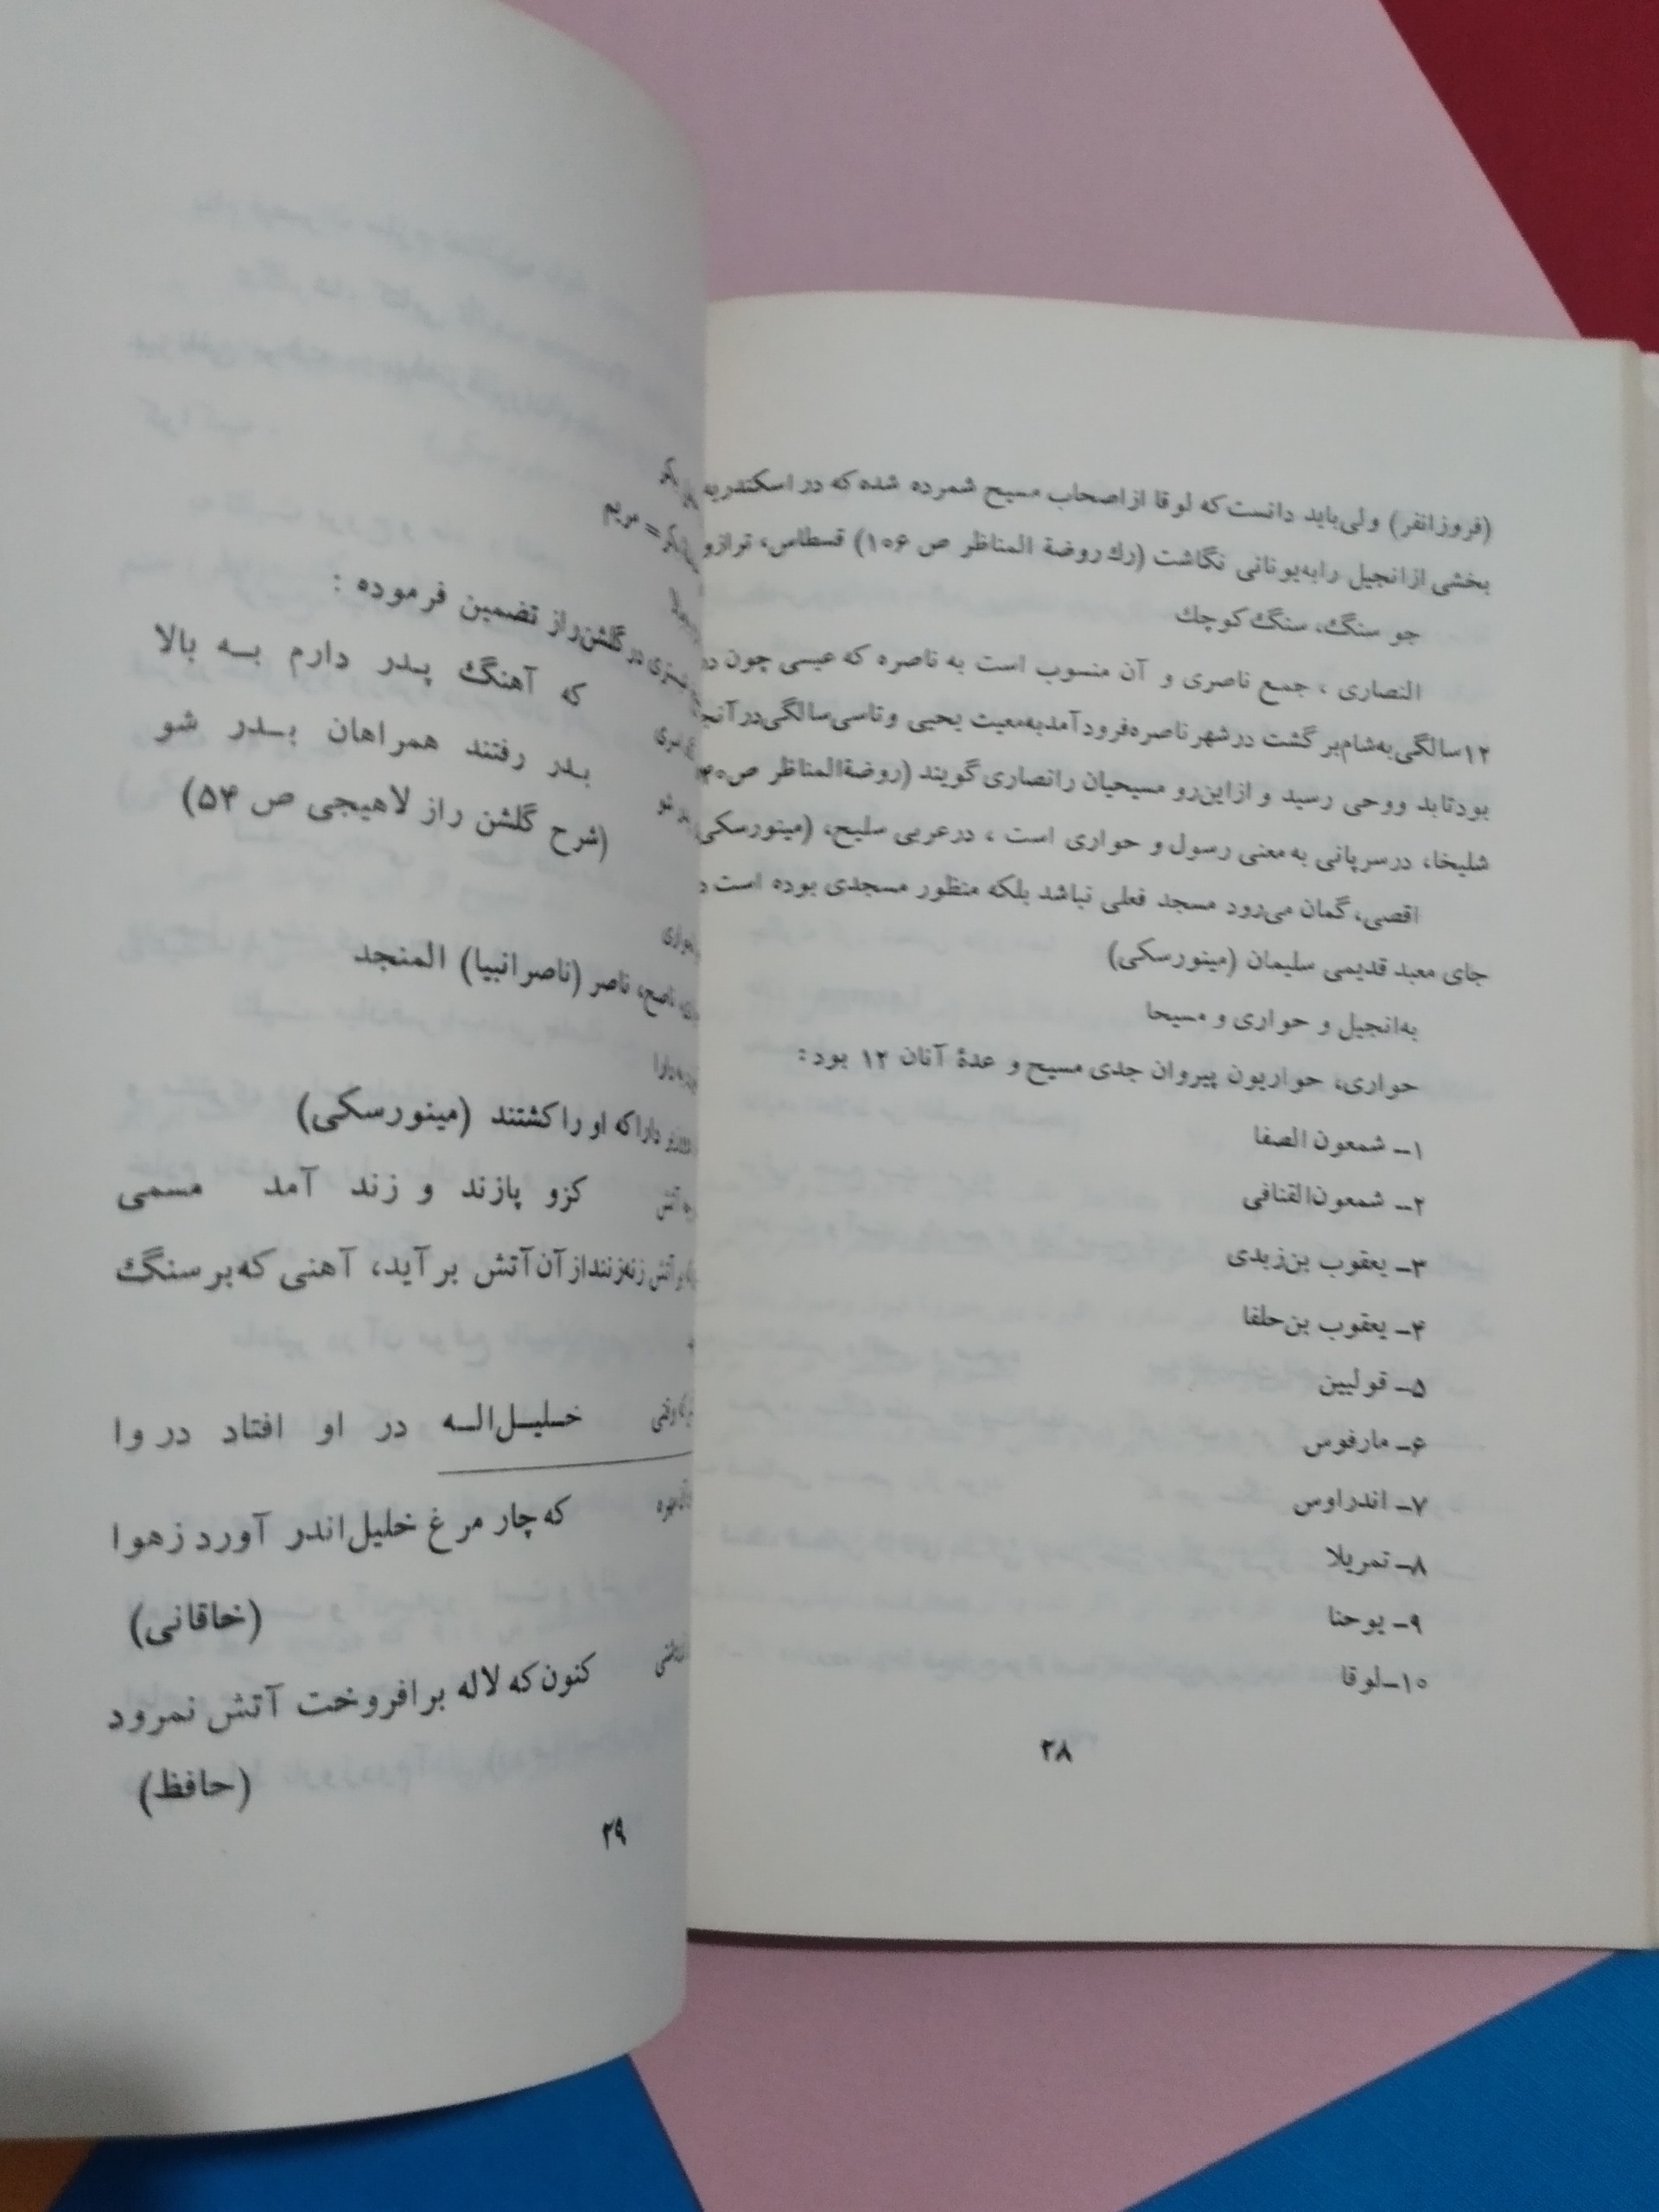 (فروزانفر) ولی باید دانست که لوقا از اصحاب مسیح شمرده شده که در اسکندریه
بخشی از انجیل را به یونانی نگاشت (رك روضة المناظر ص ۱۰۶) قسطاس، ترازو
جو سنگ، سنگ کوچك
النصاری ، جمع ناصری و آن منسوب است به ناصره که عیسی چون در
۱۲ سالگی به شام برگشت در شهر ناصره فرود آمد به معیت یحیی و تا سی سالگی در آنجا
بود تا بد ووحی رسید و از این رو مسیحیان را نصاری گویند (روضة المناظر ص
شلیخا، در سریانی به معنی رسول و حواری است ، در عربی سلیح، (مینورسکی
اقصی، گمان می‌رود مسجد فعلی نباشد بلکه منظور مسجدی بوده است
جای معبد قدیمی سلیمان (مینورسکی)
به انجیل و حواری و مسیحا
حواری، حواریون پیروان جدی مسیح و عدۀ آنان ۱۲ بود:
۱ــ شمعون الصفا
۲ــ شمعون القنافی
۳ــ یعقوب بن زبدی
۴ــ یعقوب بن حلفا
۵ــ قولیین
۶ــ مارفوس
۷ــ اندراوس
۸ــ تمریلا
۹ــ یوحنا
۱۰ــ لوقا
۲۸
= مریم
در گلشن راز تضمین فرموده :
که آهنگ پدر دارم به بالا
بدر رفتند همراهان بدر شو
(شرح گلشن راز لاهیجی ص ۵۴)
ناصح، ناصر (ناصر انبیا) المنجد
دارا که او را کشتند (مینورسکی)
کزو پازند و زند آمد مسمی
آتش زنه زنند از آن آتش برآید، آهنی که بر سنگ
خلیل‌اله در او افتاد در وا
که چار مرغ خلیل اندر آورد زهوا
(خاقانی)
کنون که لاله برافروخت آتش نمرود
(حافظ)
۲۹